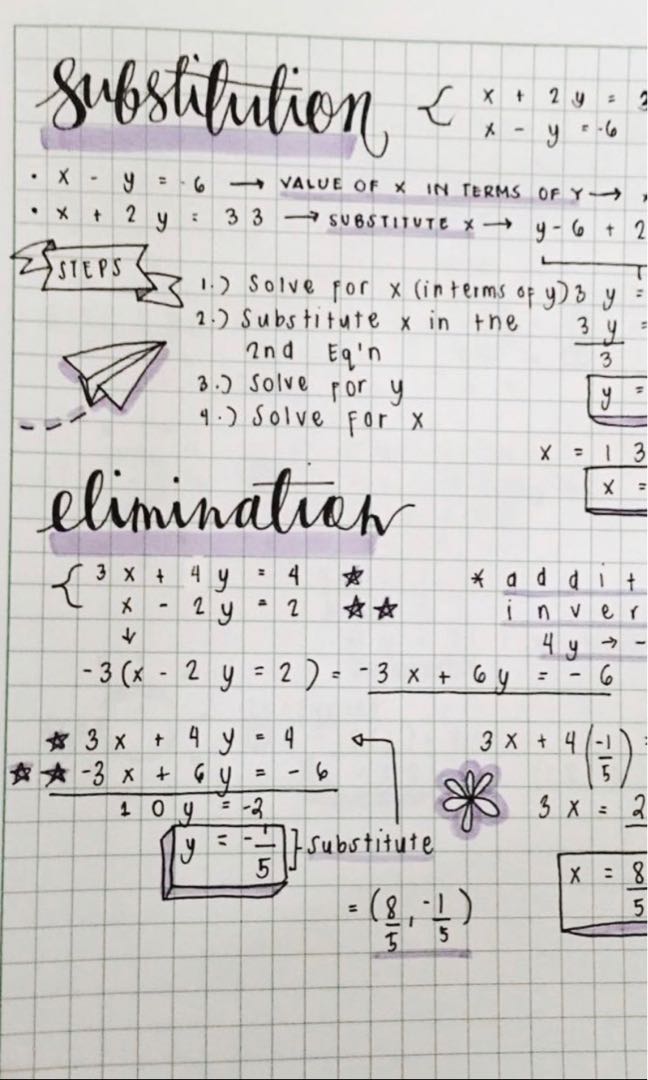 substitution { x + 2y = 3
x - y = -6
• x - y = -6 → VALUE OF X IN TERMS OF Y →
• x + 2y = 33 → SUBSTITUTE X → y - 6 + 2
STEPS
1.) Solve for x (in terms of y) 3y =
2.) Substitute x in the 3y =
2nd Eq'n 3
3.) Solve for y y =
4.) Solve for x
x = 13
x =
elimination
{ 3x + 4y = 4 ☆ * addit
x - 2y = 2 ☆☆ inver
↓ 4y → -
-3(x - 2y = 2) = -3x + 6y = -6
☆ 3x + 4y = 4 3x + 4(-1/5) =
☆☆ -3x + 6y = -6
10y = -2 3x = 2
y = -1/5 ] substitute x = 8/5
= (8/5, -1/5)